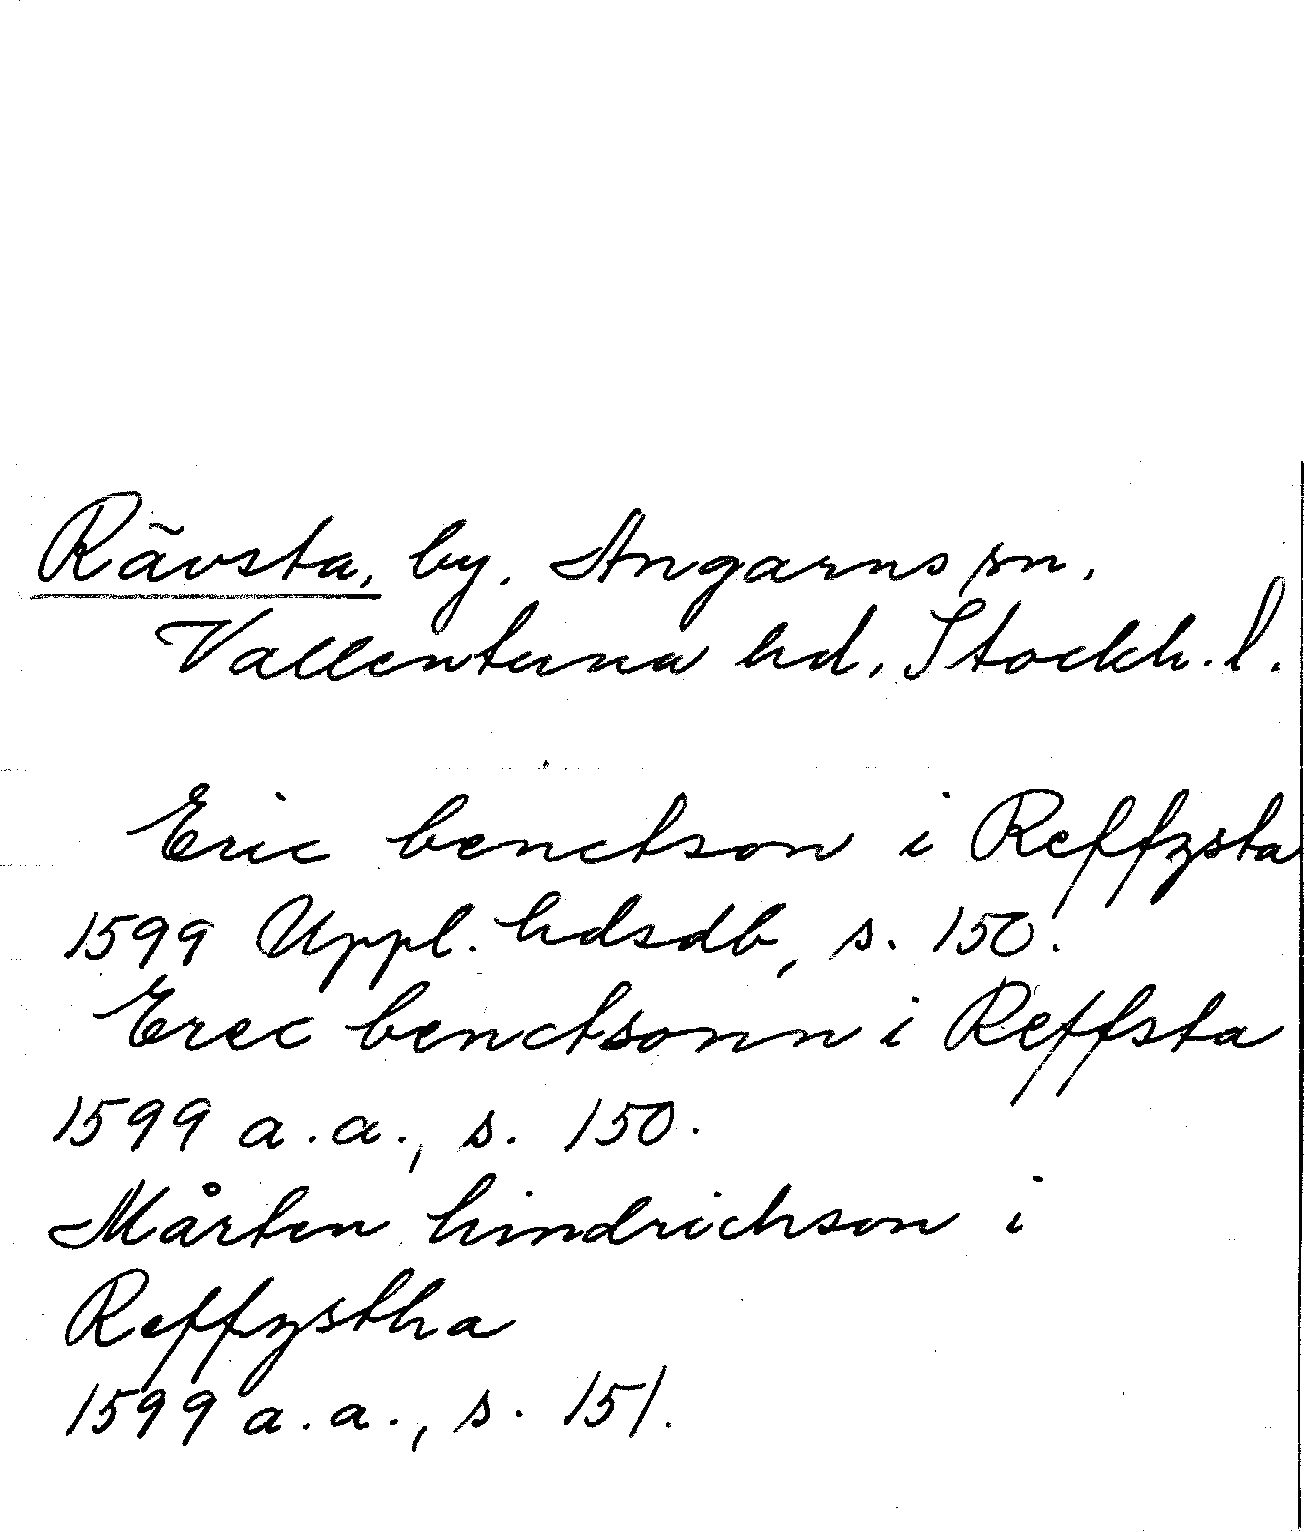 Rävsta, by. Angarns sn.
Vallentuna hd, Stockh. l.
Eric benctson i Reffzsta
1599 Uppl. hdsdb, s. 150.
Erec benctsonn i Reffsta
1599 a.a., s. 150.
Mårten hindrichson i
Reffzstha
1599 a.a., s. 151.